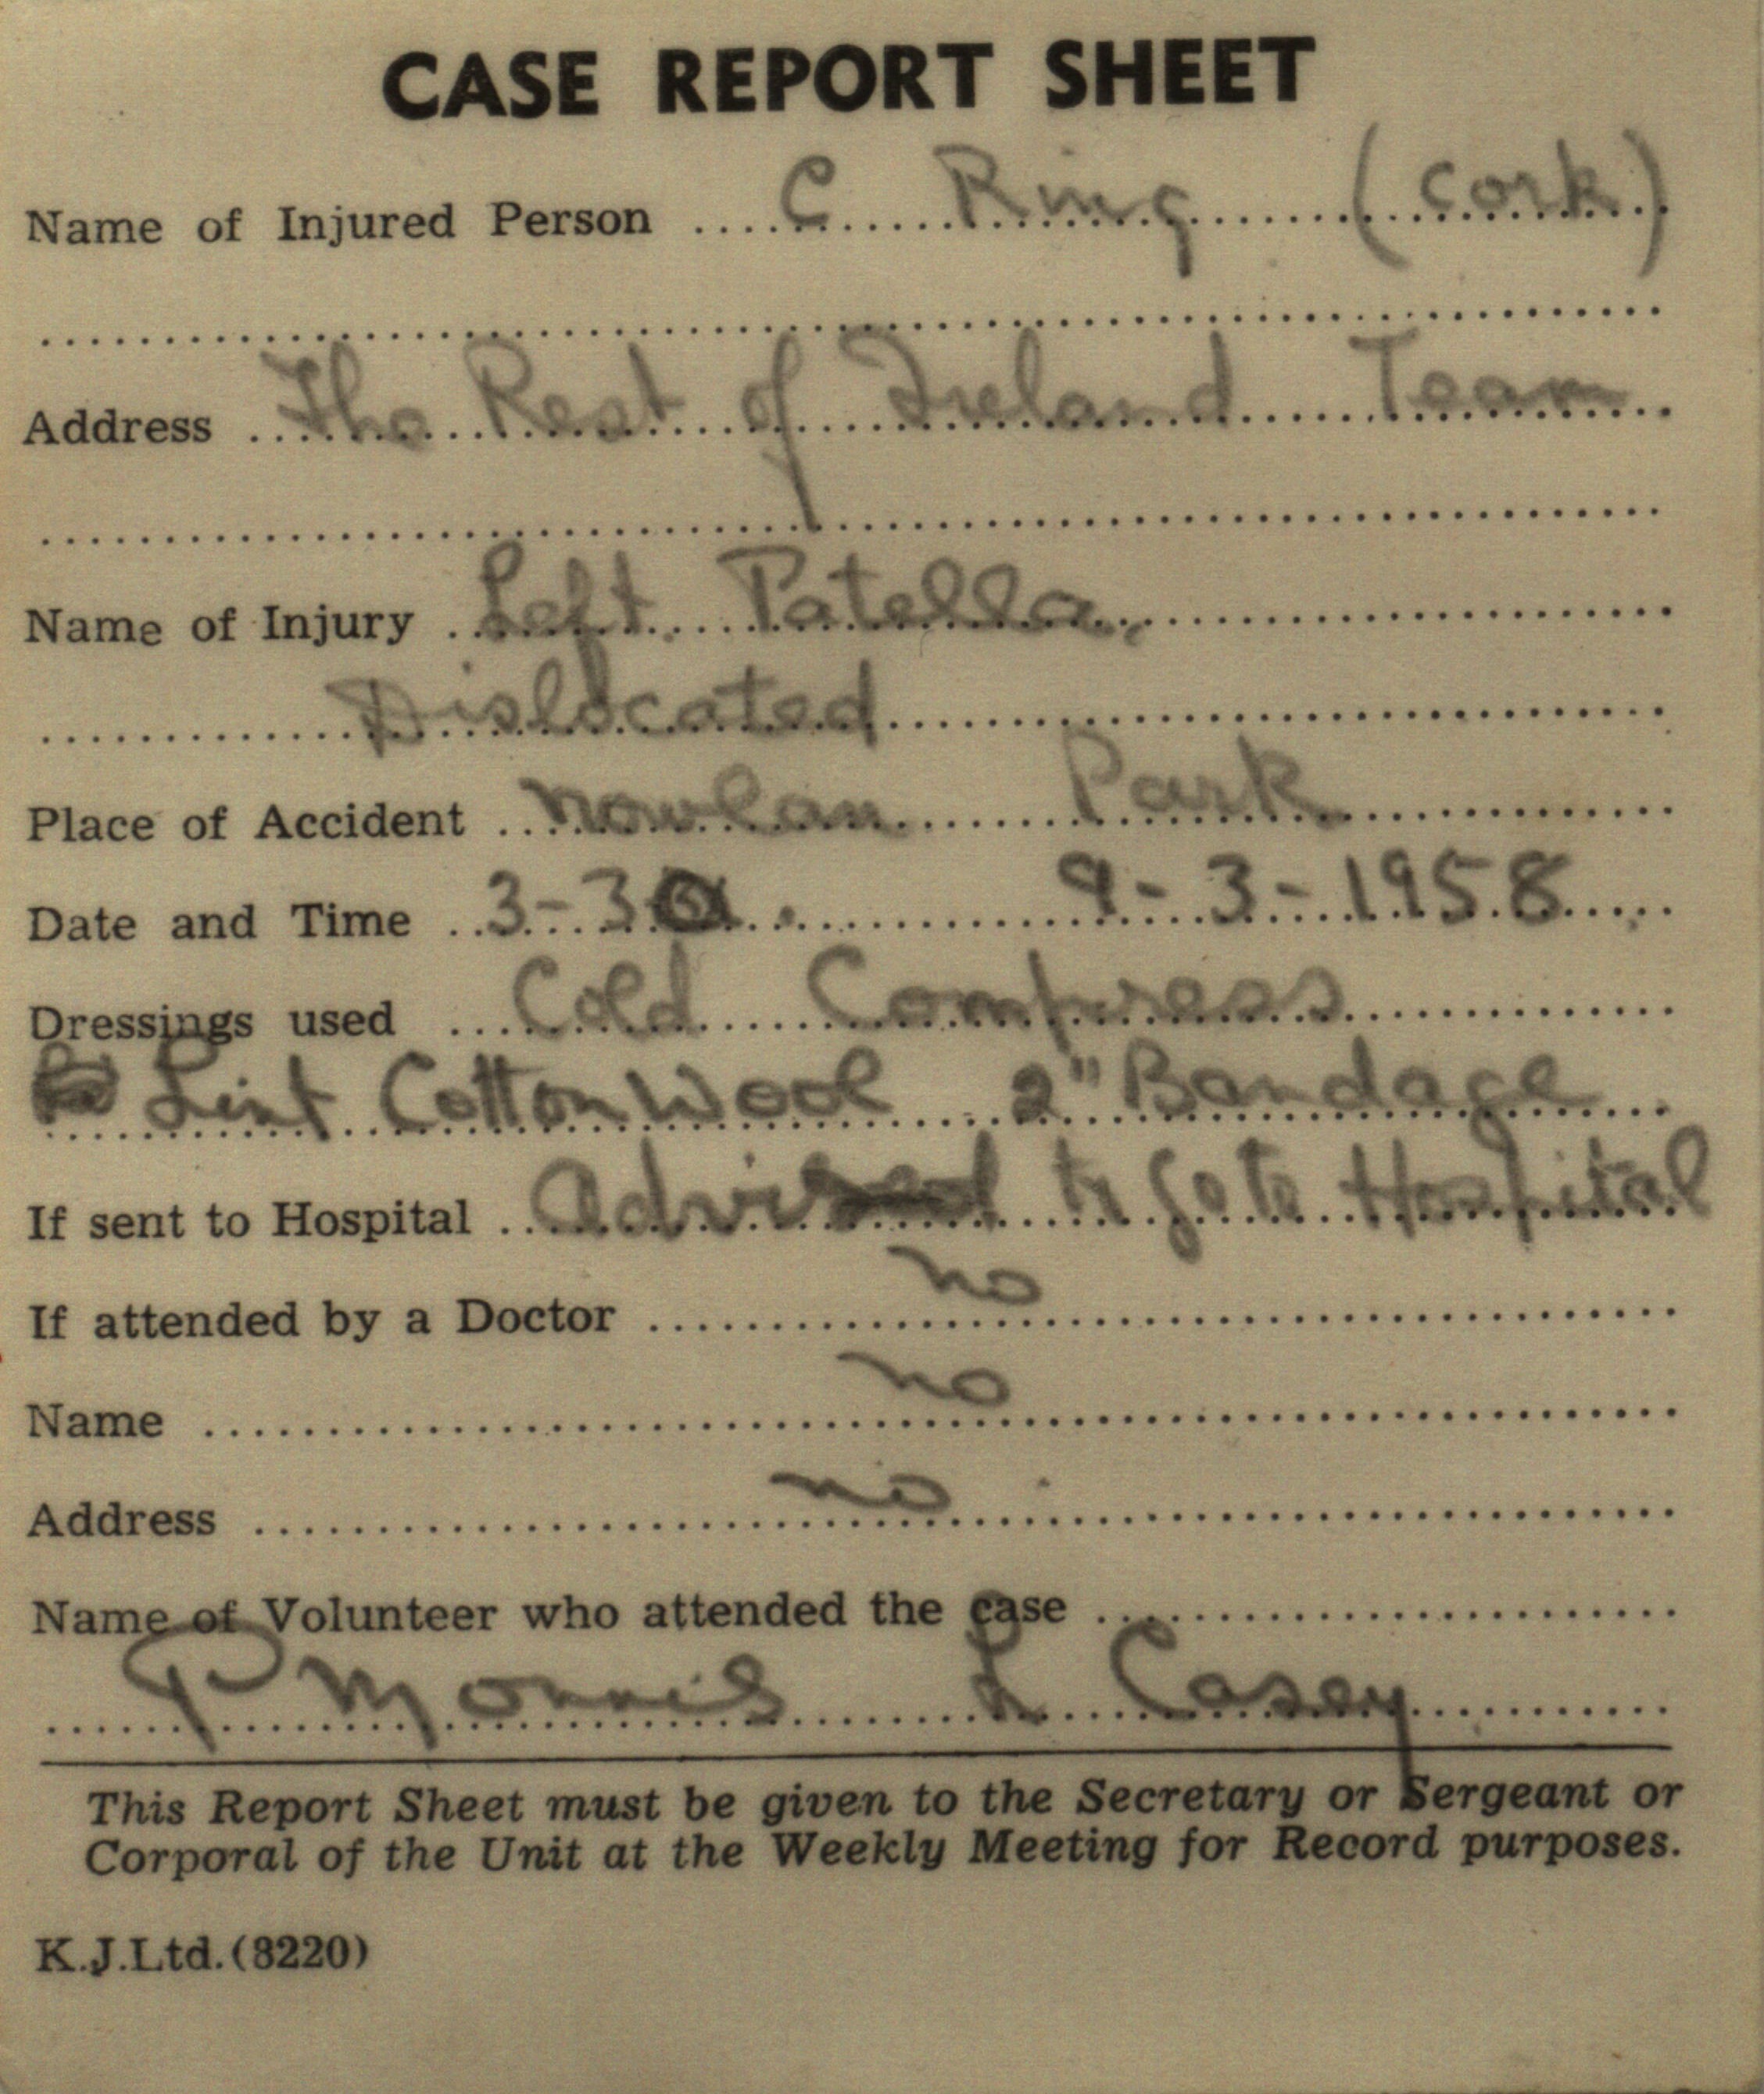 CASE REPORT SHEET
Name of Injured Person .... C Ring (Cork)
Address The Rest of Ireland Team
Name of Injury Left Patella,
Dislocated
Place of Accident Nowlan Park
Date and Time 3-30. 9-3-1958
Dressings used Cold Compress
Lint Cotton Wool 2" Bandage
If sent to Hospital advised to go to Hospital
If attended by a Doctor no
Name no
Address no
Name of Volunteer who attended the case
P Morris Casey
This Report Sheet must be given to the Secretary or Sergeant or
Corporal of the Unit at the Weekly Meeting for Record purposes.
K.J.Ltd.(8220)